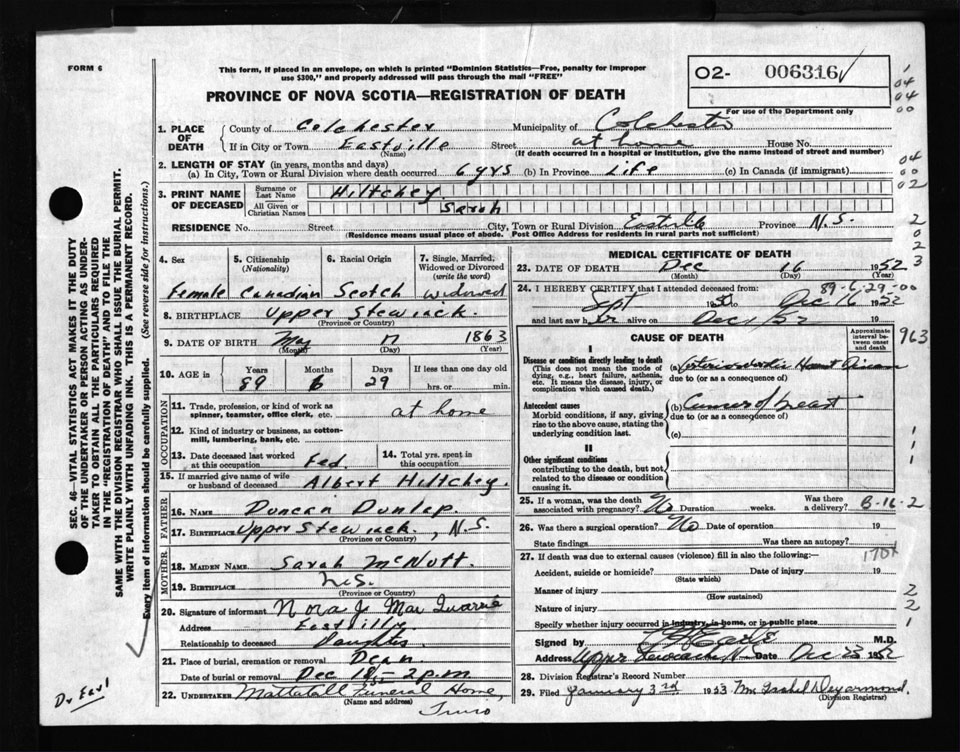 FORM 6
This form, if placed in an envelope, on which is printed "Dominion Statistics—Free, penalty for improper
use $300," and properly addressed will pass through the mail "FREE"
O2- 006316 ✓
PROVINCE OF NOVA SCOTIA—REGISTRATION OF DEATH
For use of the Department only
1. PLACE OF DEATH { County of Colchester Municipality of Colchester
If in City or Town Eastville Street at home House No.
(Name) (If death occurred in a hospital or institution, give the name instead of street and number)
2. LENGTH OF STAY (in years, months and days)
(a) In City, Town or Rural Division where death occurred 6 yrs (b) In Province Life (c) In Canada (if immigrant)
3. PRINT NAME OF DECEASED { Surname or Last Name Hiltchey
All Given or Christian Names Sarah
RESIDENCE No. Street City, Town or Rural Division Eastville Province N.S.
(Residence means usual place of abode. Post Office Address for residents in rural parts not sufficient)
4. Sex Female
5. Citizenship (Nationality) Canadian
6. Racial Origin Scotch
7. Single, Married, Widowed or Divorced (write the word) Widowed
8. BIRTHPLACE Upper Stewiack.
(Province or Country)
9. DATE OF BIRTH May 17 1863
(Month) (Day) (Year)
10. AGE Years 89 Months 6 Days 29 If less than one day old
hrs. or min.
OCCUPATION
11. Trade, profession, or kind of work as spinner, teamster, office clerk, etc. at home
12. Kind of industry or business, as cotton-mill, lumbering, bank, etc.
13. Date deceased last worked at this occupation Feb. 14. Total yrs. spent in this occupation
15. If married give name of wife or husband of deceased Albert Hiltchey.
FATHER
16. Name Duncan Dunlap.
17. Birthplace Upper Stewiack, N.S.
(Province or Country)
MOTHER
18. MAIDEN NAME Sarah McNutt.
19. BIRTHPLACE N.S.
(Province or Country)
20. Signature of informant Nora J. MacQuarrie
Address Eastville
Relationship to deceased Daughter
21. Place of burial, cremation or removal Dean
Date of burial or removal Dec 18 - 2 p.m
22. UNDERTAKER Mattatall Funeral Home,
(Name and address) Truro
MEDICAL CERTIFICATE OF DEATH
23. DATE OF DEATH Dec 16 1952
(Month) (Day) (Year)
24. I HEREBY CERTIFY that I attended deceased from: 89-6-29-00
Sept 1950 Dec 16 1952
and last saw her alive on Dec 1/52 19
CAUSE OF DEATH
Approximate interval between onset and death
963
I
Disease or condition directly leading to death
(This does not mean the mode of dying, e.g., heart failure, asthenia, etc. It means the disease, injury, or complication which caused death.)
(a) Arteriosclerotic Heart Disease
due to (or as a consequence of)
Antecedent causes
Morbid conditions, if any, giving rise to the above cause, stating the underlying condition last.
(b) Cancer of breast
due to (or as a consequence of)
(c)
II
Other significant conditions
contributing to the death, but not related to the disease or condition causing it.
25. If a woman, was the death associated with pregnancy? No Duration weeks. Was there a delivery? B-16-2
26. Was there a surgical operation? No Date of operation 19
State findings Was there an autopsy?
170X
27. If death was due to external causes (violence) fill in also the following:—
Accident, suicide or homicide? Date of injury 19
(State which)
Manner of injury
(How sustained)
Nature of injury
Specify whether injury occurred in industry, in home, or in public place
Signed by M.D.
Address Upper Stewiacke N.S. Date Dec 23 1952
28. Division Registrar's Record Number
29. Filed January 3rd 1953
(Division Registrar)
SEC. 46—VITAL STATISTICS ACT MAKES IT THE DUTY
OF THE UNDERTAKER OR PERSON ACTING AS UNDER-
TAKER TO OBTAIN ALL THE PARTICULARS REQUIRED
IN THE "REGISTRATION OF DEATH" AND TO FILE THE
SAME WITH THE DIVISION REGISTRAR WHO SHALL ISSUE THE BURIAL PERMIT.
WRITE PLAINLY WITH UNFADING INK. THIS IS A PERMANENT RECORD.
Every item of information should be carefully supplied. (See reverse side for instructions.)
Dr. Earl
1
04
04
00
04
00
02
2
0
2
3
1
1
1
2
2
1